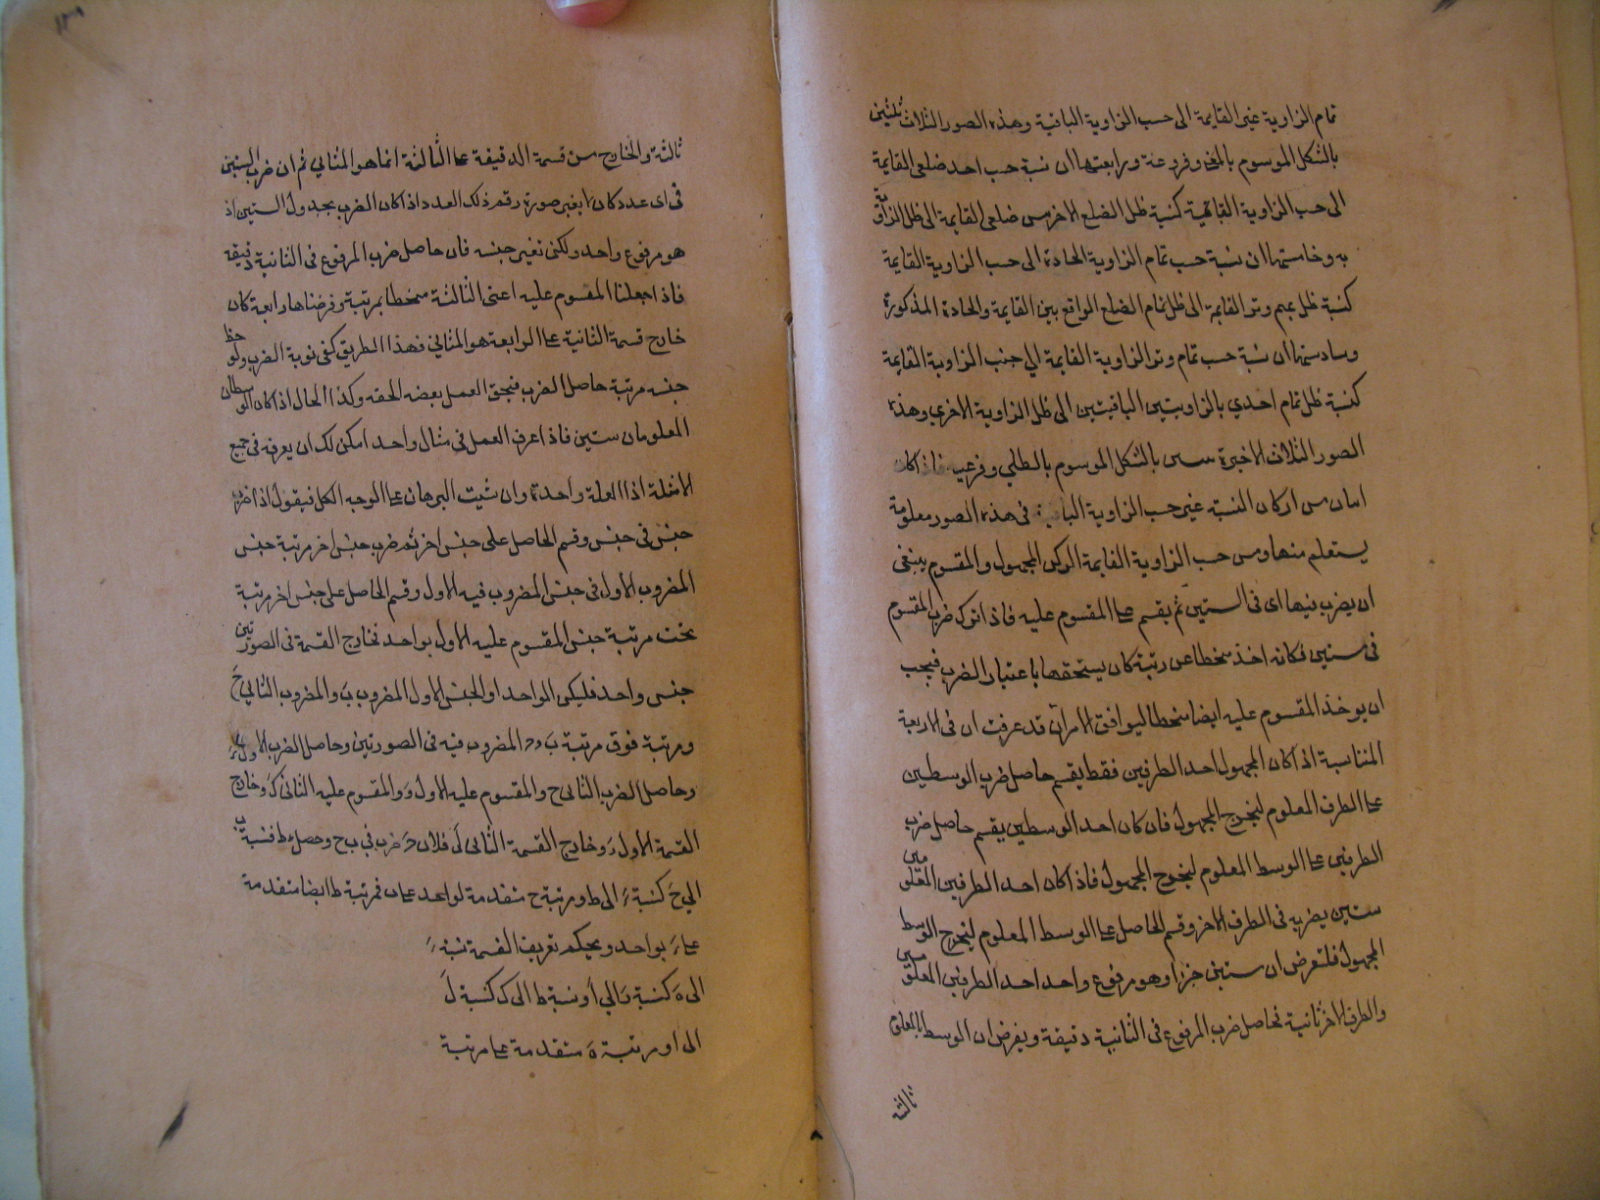 تمام الزاوية غير القايمة الى حسب الزاوية الباقية وهذه الصور الثلاث
بالشكل الموسوم بالمغنى وفروعه ورابعتها ان نسبة حسب احد ضلعى القايمة
الى حسب الزاوية القايمة كنسبة ظل الضلع الاخر من ضلعى القايمة الى ظل
وخامستها ان نسبة حسب تمام الزاوية الحادة الى حسب الزاوية القايمة
كنسبة ظل تمام وتر القايمة الى ظل تمام الضلع الواقع بين القايمة والحادة المذكورة
وسادستها ان نسبة حسب تمام وتر الزاوية القايمة الى جنب الزاوية القايمة
كنسبة ظل تمام احدي بالزاويتين الباقيتين الى ظل الزاوية الاخرى وهذه
الصور الثلاث الاخيرة بالشكل الموسوم بالظلي وفرعيه فاذا كان
من اركان النسبة غير حسب الزاوية الباقية فى هذه الصور معلومة
يستعلم منها ومن حسب الزاوية القايمة الركن المجهول والمقسوم ينبغى
ان يضرب فيها اى فى الستين ثم يقسم على المقسوم عليه فاذا ترك ضرب المقسوم
فى ستين فكانه اخذ منحطا عن رتبة كان يستحقها باعتبار الضرب فيجب
ان يوخذ المقسوم عليه ايضا منحطا ليوافق الامران قد عرفت ان فى الاربعة
المتناسبة اذا كان المجهول احد الطرفين فقط يقسم حاصل ضرب الوسطين
على الطرف المعلوم ليخرج المجهول فان كان احد الوسطين يقسم حاصل ضرب
الطرفين على الوسط المعلوم ليخرج المجهول فاذا كان احد الطرفين المعلومين
ستين يضربه فى الطرف الاخر وقسم الحاصل على الوسط المعلوم ليخرج الوسط
المجهول فلنفرض ان ستين جزا وهو مرفوع واحد احد الطرفين المعلومين
والطرف الاخر ثانية فحاصل ضرب المرفوع فى الثانية دقيقة ويفرض ان الوسط المعلوم
ثالثة
ثالثة والخارج من قسمة الدقيقة على الثالثة انما هو المثاني ثم ان ضرب الستين
فى اى عدد كان لا يغير صورة رقم ذلك العدد اذا كان الضرب بجدول الستين اذ
هو مرفوع واحد ولكن تغير جنسه فان حاصل ضرب المرفوع فى الثانية دقيقة
فاذا جعلنا المقسوم عليه اعنى الثالثة منحطا بمرتبة وفرضناها رابعة كان
خارج قسمة الثانية على الرابعة هو المثاني فهذا الطريق كفى نوبة الضرب
جنسه مرتبة حاصل الضرب العمل بعضه الحقه وكذا الحال اذا كان الوسطان
المعلومان ستين فاذا عرف العمل فى مثال واحد امكن لك ان يعرفه فى جميع
الامثلة اذا العلة واحدة وان شيت البرهان على الوجه الكل فيقول اذا ضرب
جنس فى جنس وقسم الحاصل على جنس اخر ثم ضرب جنس اخر مرتبة جنس
المضروب الاول فى جنس المضروب فيه الاول وقسم الحاصل على جنس اخر مرتبة
تحت مرتبة جنس المقسوم عليه الاول بواحد فخارج القسمة فى الصورتين
جنس واحد فليكن الواحد ا والجنس الاول المضروب ب والمضروب الثاني ح
ومرتبة فوق مرتبة ب المضروب فيه فى الصورتين وحاصل الضرب الاول
وحاصل الضرب الثانى ح والمقسوم عليه الاول و والمقسوم عليه الثانى ك وخارج
القسمة الاول وخارج القسمة الثانى ل فلان ضرب فى ب ح وحصل ه ط فنسبة ب
الي ح كنسبة ه الى ط ومرتبة ح متقدمة لواحد على ب فمرتبة ط ايضا متقدمة
على ه بواحد وبحكم تعريف القسمة نسبة
الى ه كنسبة الي ا ونسبة ط الى ك كنسبة ل
الى ا ومرتبة ه متقدمة على مرتبة